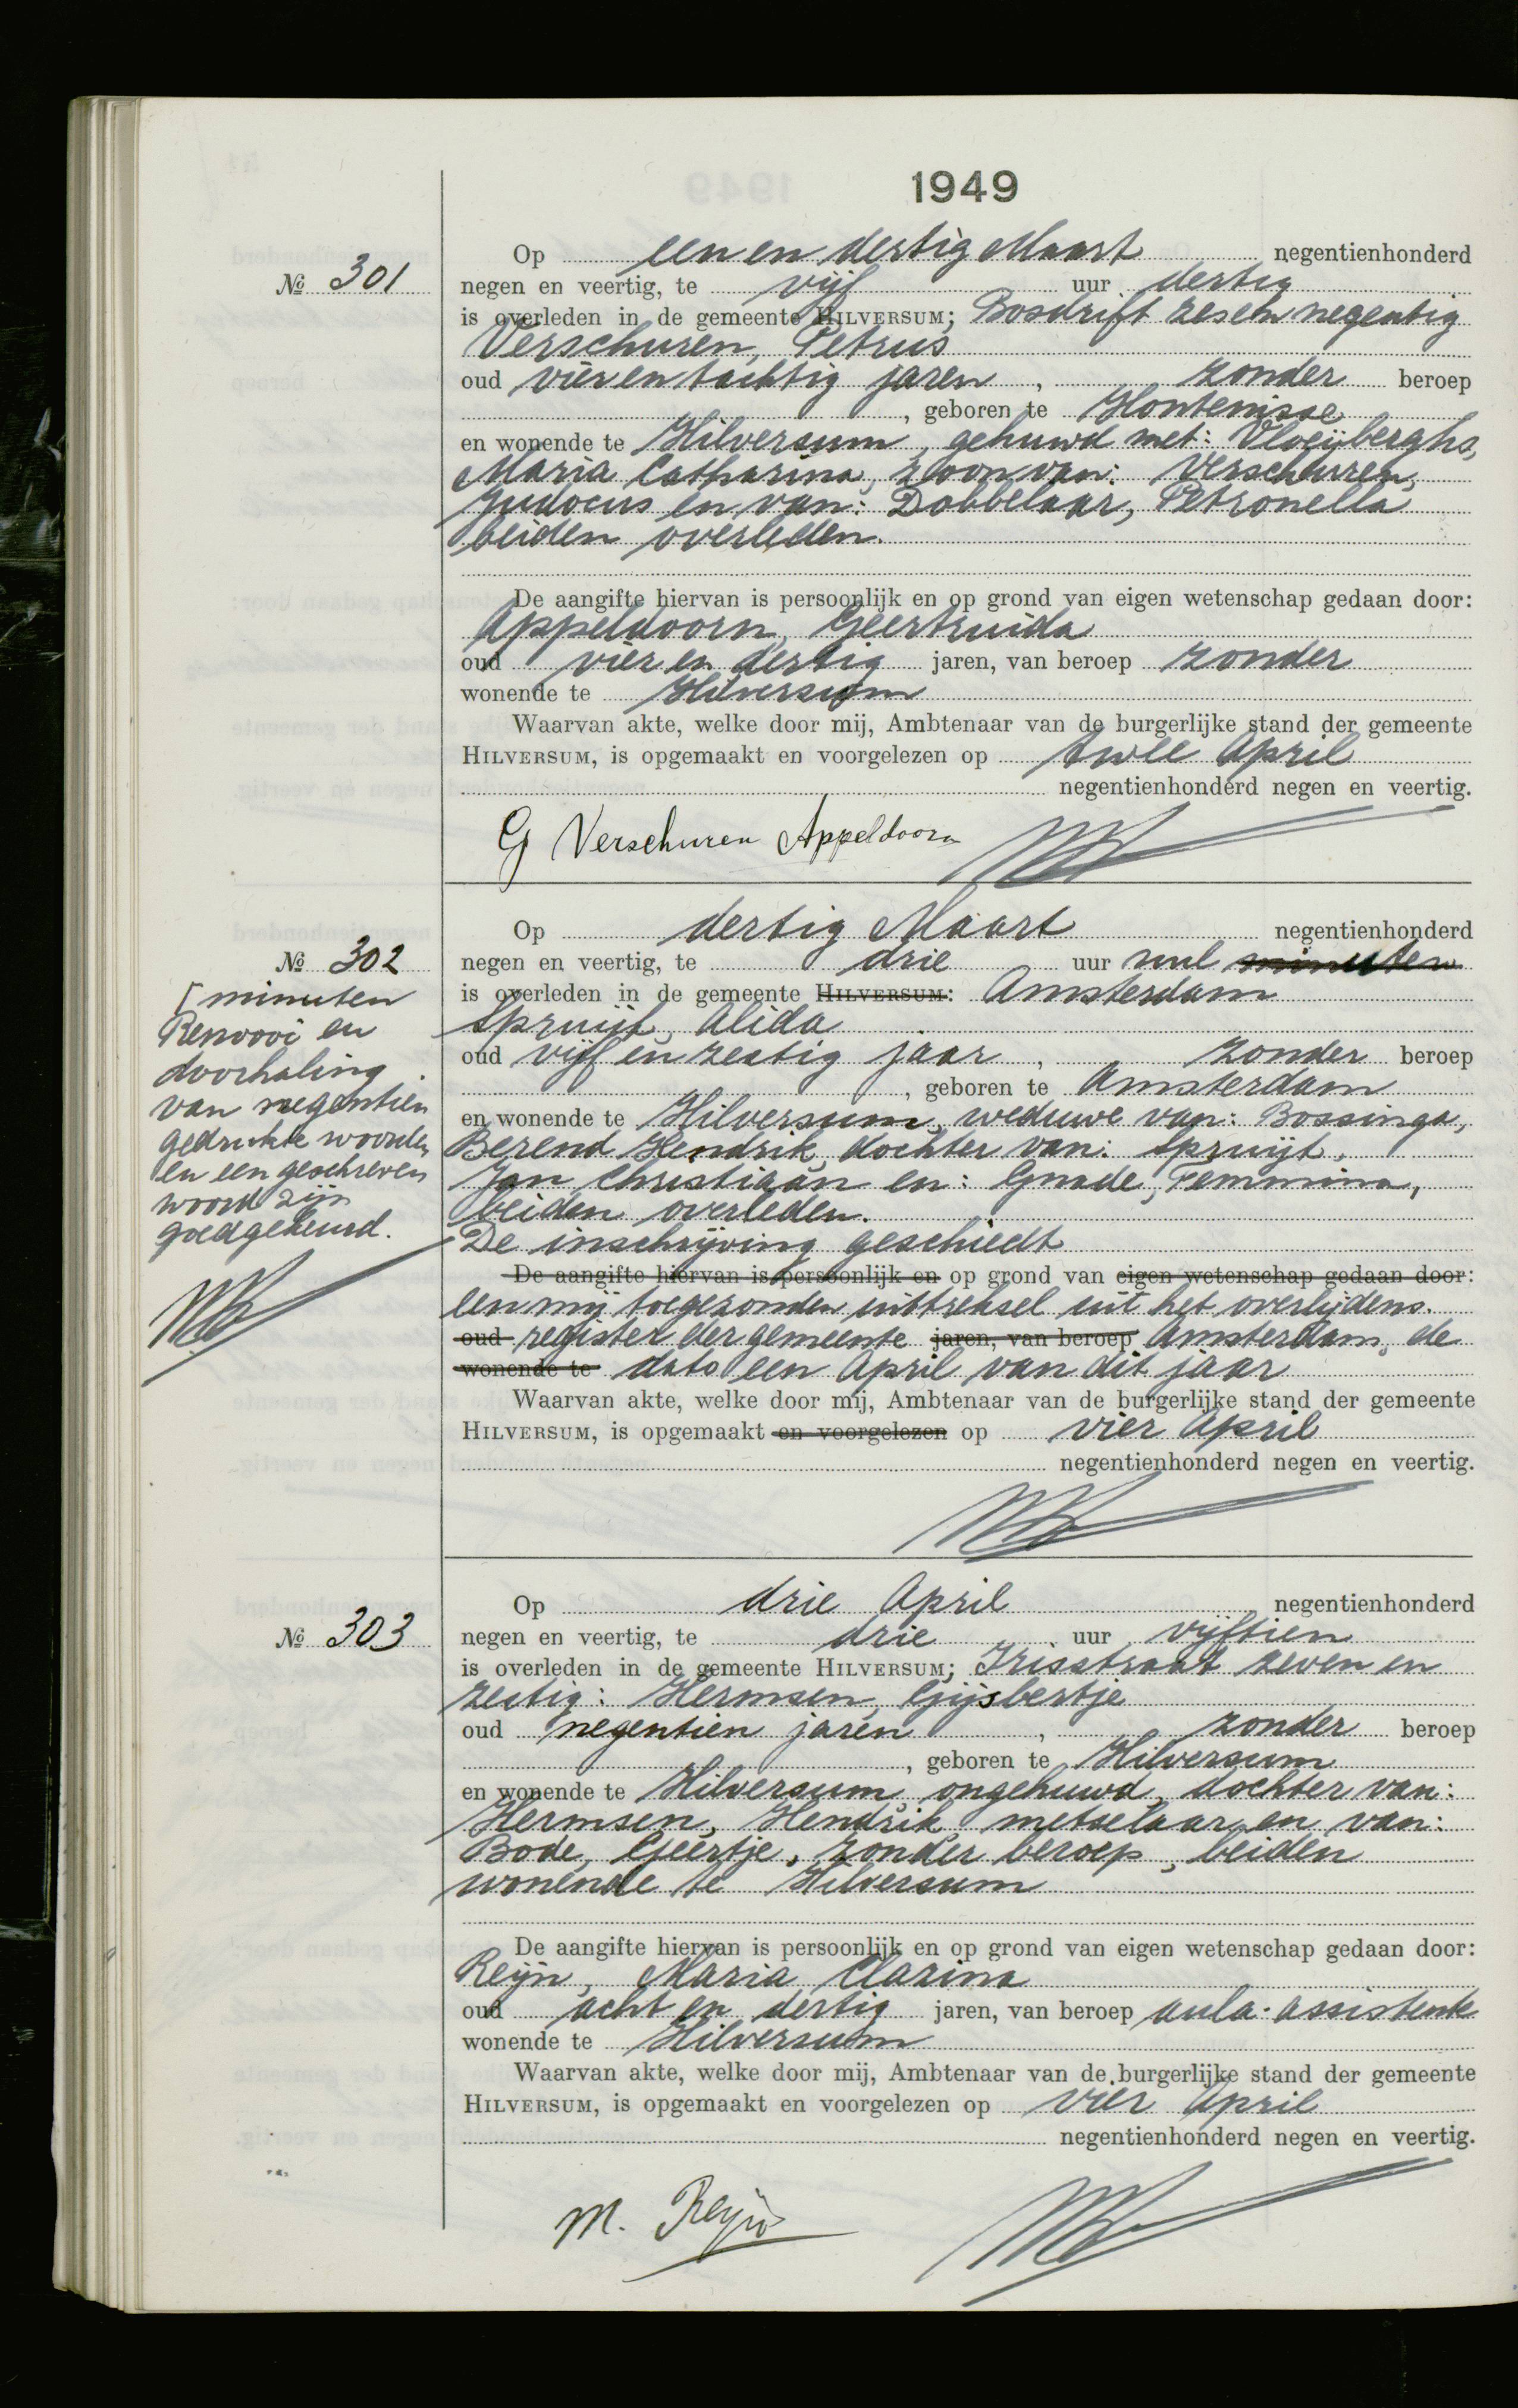 1949
Op een en dertig Maart negentienhonderd
№ 301
negen en veertig, te vijf uur dertig
is overleden in de gemeente HILVERSUM; Bosdrift zes en negentig
Verschuren, Petrus
oud vier en tachtig jaren, zonder beroep
, geboren te Hontenisse
en wonende te Hilversum, gehuwd met: Vloeijberghs,
Maria Catharina, zoon van: Verschuren,
Judocus en van: Dobbelaar, Petronella
beiden overleden.
De aangifte hiervan is persoonlijk en op grond van eigen wetenschap gedaan door:
Appeldoorn, Geertruida
oud vier en dertig jaren, van beroep zonder
wonende te Hilversum
Waarvan akte, welke door mij, Ambtenaar van de burgerlijke stand der gemeente
HILVERSUM, is opgemaakt en voorgelezen op twee April
negentienhonderd negen en veertig.
G Verschuren Appeldoorn
Op dertig Maart negentienhonderd
№ 302
negen en veertig, te drie uur nul minuten
is overleden in de gemeente HILVERSUM: Amsterdam
Spruijt, Alida
oud vijf en zestig jaar, zonder beroep
, geboren te Amsterdam
en wonende te Hilversum, weduwe van: Bossinga,
Berend Hendrik, dochter van: Spruijt,
Jan Christiaan en: Gnade, Femmina,
beiden overleden.
De inschrijving geschiedt
De aangifte hiervan is persoonlijk en op grond van eigen wetenschap gedaan door:
een mij toegezonden uittreksel uit het overlijdens.
oud register der gemeente jaren, van beroep Amsterdam, de
wonende te dato een April van dit jaar
Waarvan akte, welke door mij, Ambtenaar van de burgerlijke stand der gemeente
HILVERSUM, is opgemaakt en voorgelezen op vier April
negentienhonderd negen en veertig.
[ minuten
Renvooi en
doorhaling
van negentien
gedrukte woorden
en een geschreven
woord zijn
goedgekeurd.
Op drie April negentienhonderd
№ 303
negen en veertig, te drie uur vijftien
is overleden in de gemeente HILVERSUM; Irisstraat zeven en
zestig: Hermsen, Gijsbertje
oud negentien jaren, zonder beroep
, geboren te Hilversum
en wonende te Hilversum, ongehuwd, dochter van:
Hermsen, Hendrik, metselaar en van:
Bode, Geertje, zonder beroep, beiden
wonende te Hilversum
De aangifte hiervan is persoonlijk en op grond van eigen wetenschap gedaan door:
Reijn, Maria Clarina
oud acht en dertig jaren, van beroep aula-assistente
wonende te Hilversum
Waarvan akte, welke door mij, Ambtenaar van de burgerlijke stand der gemeente
HILVERSUM, is opgemaakt en voorgelezen op vier April
negentienhonderd negen en veertig.
M. Reijn